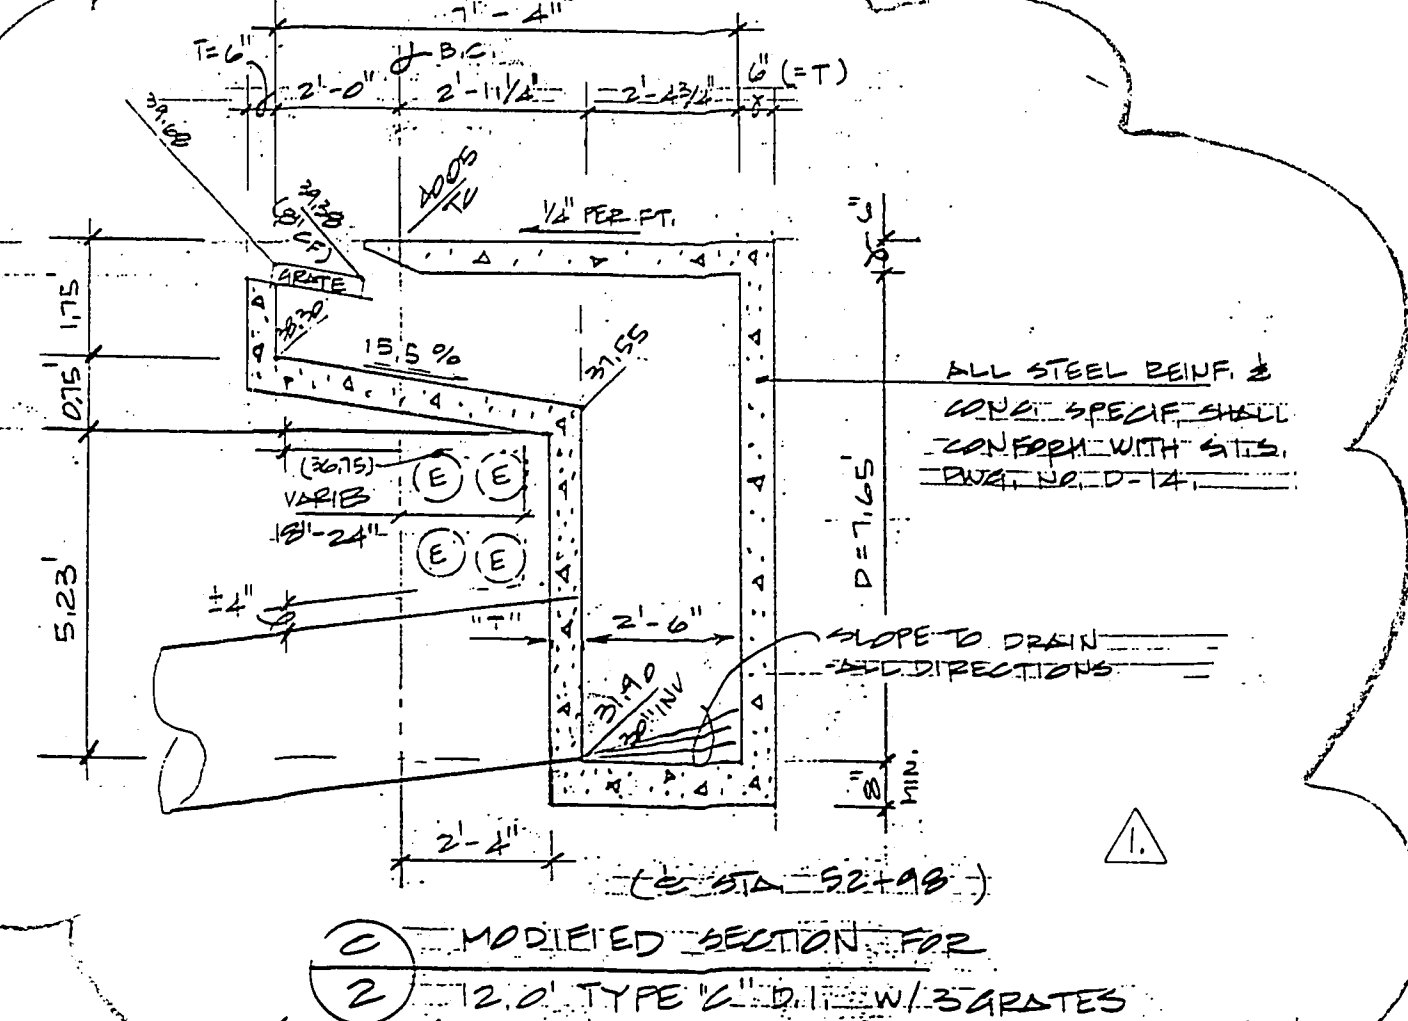 7'-4"
T=6"
B.C.
6" (=T)
2'-0"
2'-11 1/4"
2'-4 3/4"
39.68
39.38
(8" CF)
40.05
TC
1/4" PER FT.
6"
GRATE
1.75
38.30
15.5 %
37.55
0.75'
ALL STEEL REINF. &
CONC. SPECIF. SHALL
CONFORM WITH STS.
DWG. NO. D-14.
(36.75)
VARIES
18"-24"
E
E
E
E
D=7.65'
5.23'
±4"
"T"
2'-6"
SLOPE TO DRAIN
ALL DIRECTIONS
31.90
INV
8"
MIN.
2'-4"
1.
(@ STA 52+98)
C
MODIFIED SECTION FOR
2
12.0' TYPE "C" D.I. W/ 3 GRATES